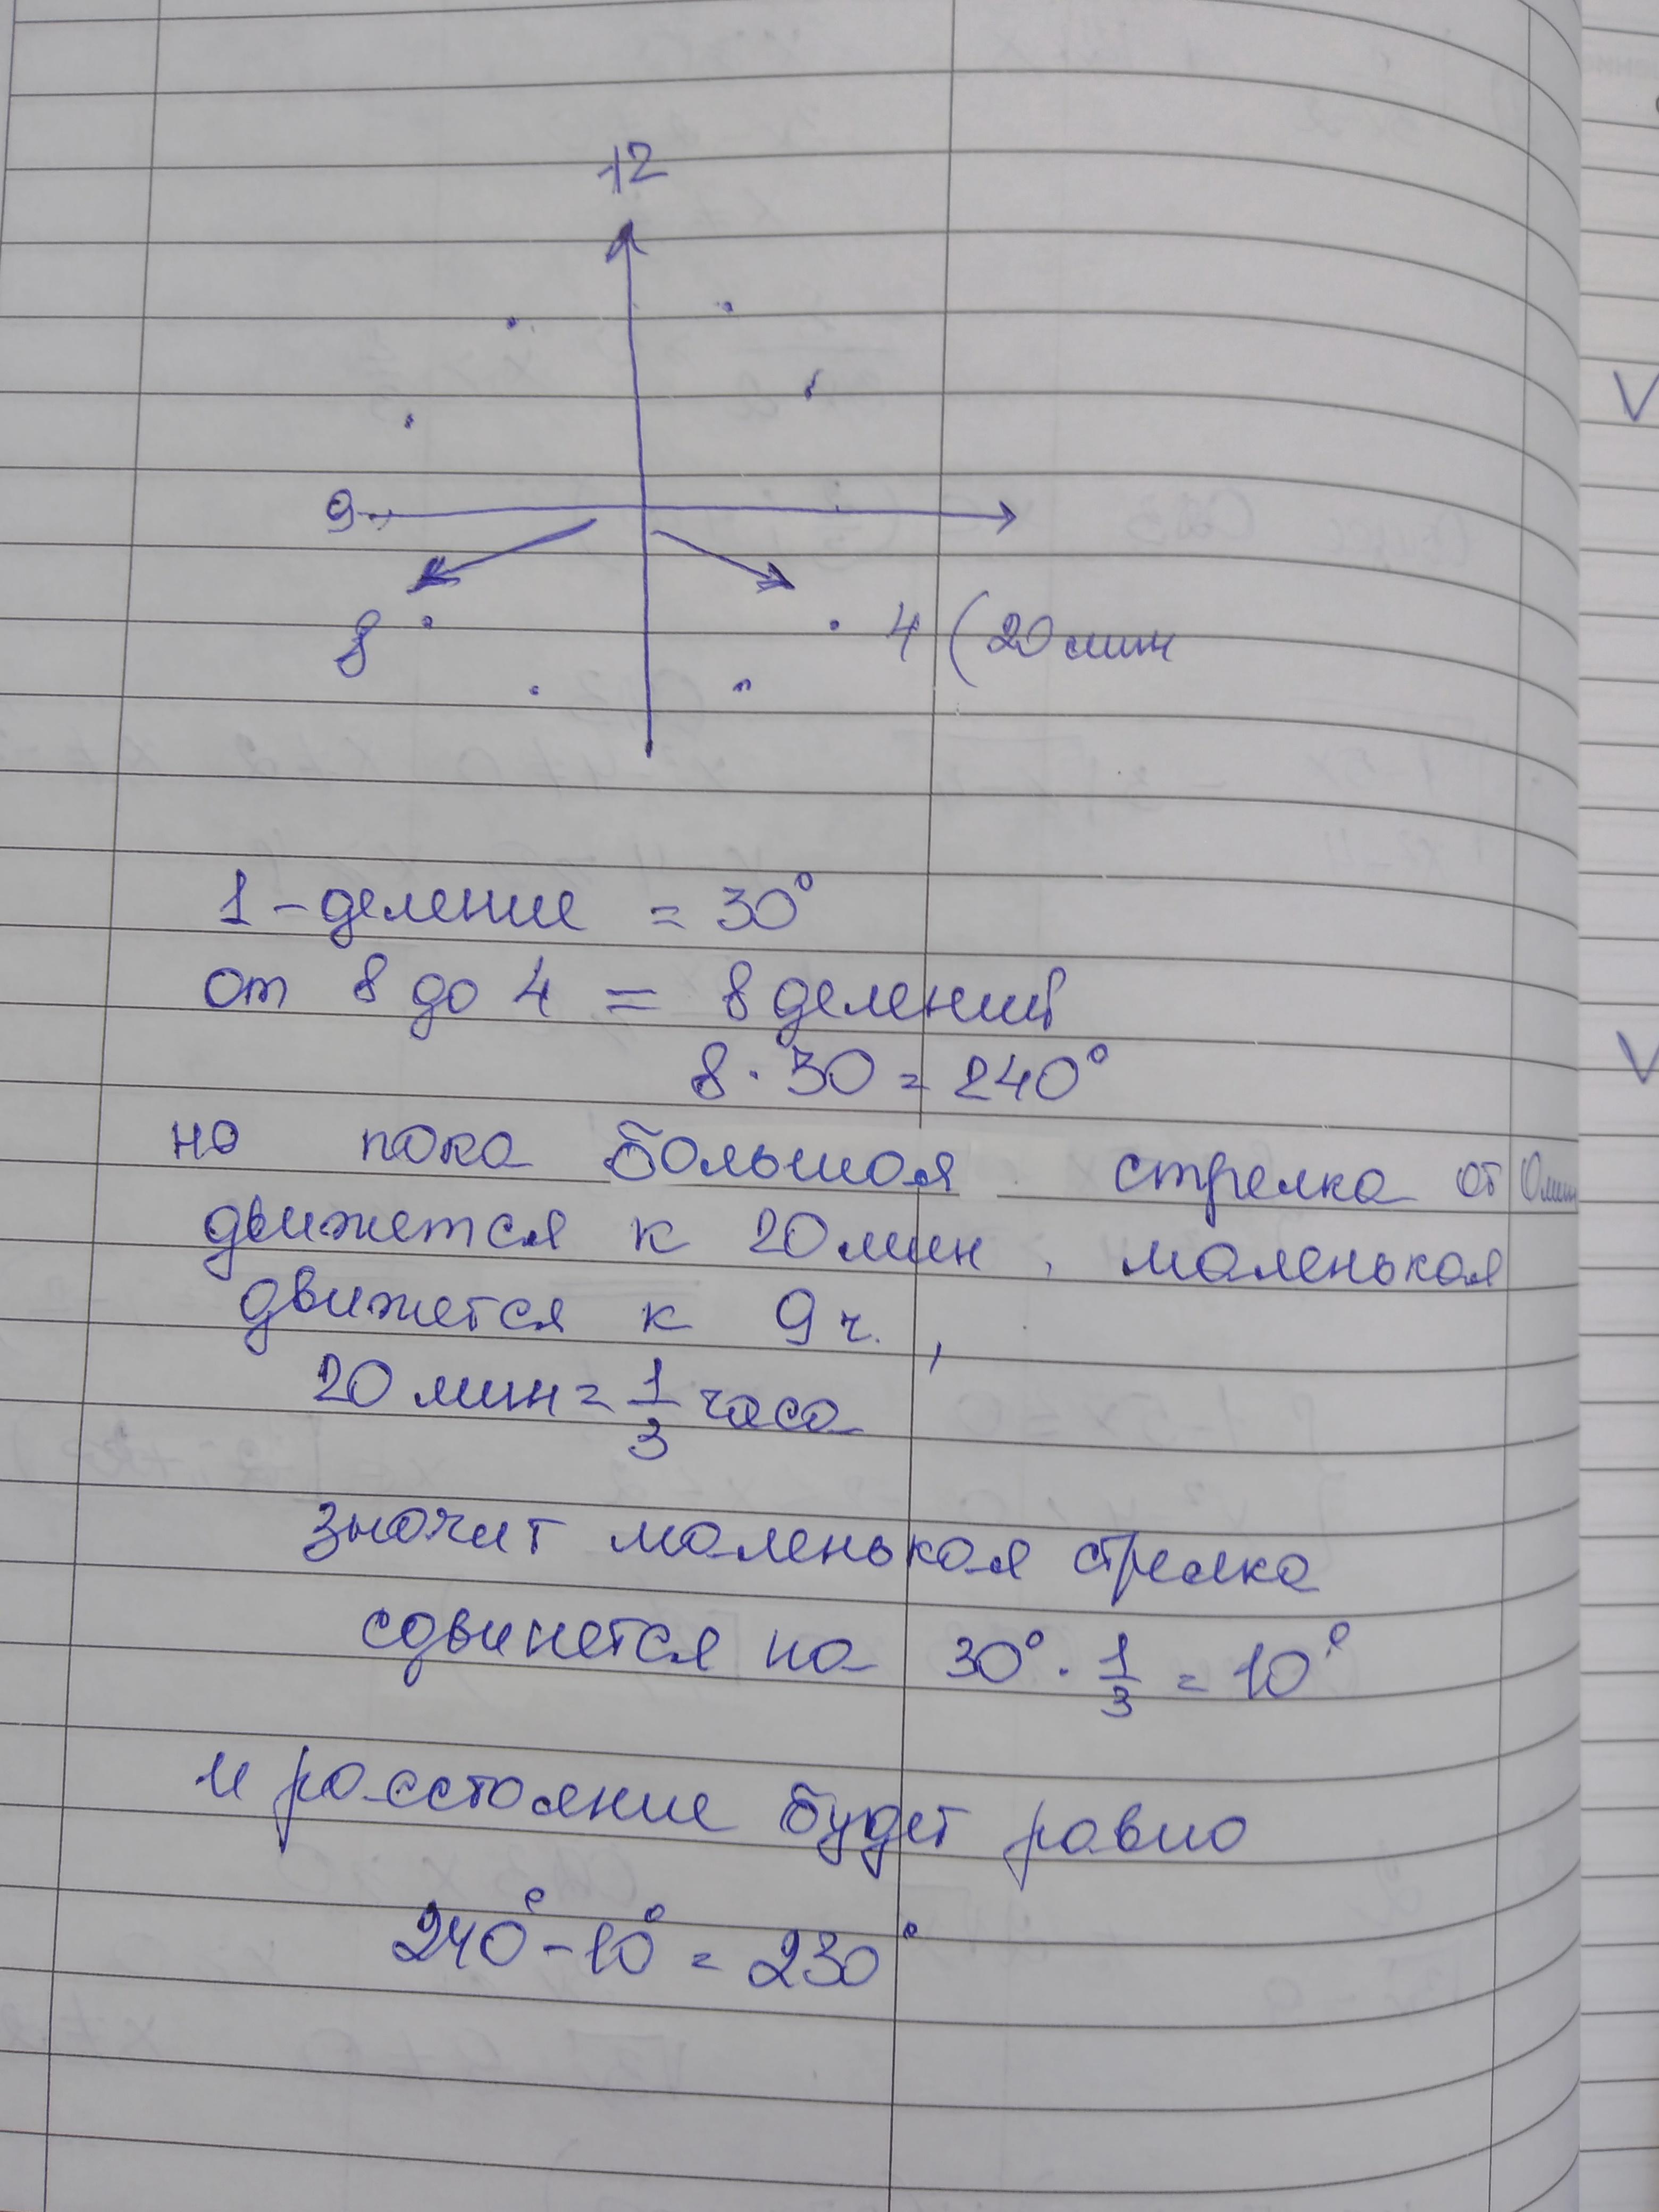 12
9
8
4 (20 мин
1 - деление = 30°
от 8 до 4 = 8 делений
8 · 30 = 240°
но пока большая стрелка от 0 мин
движется к 20 мин, маленькая
движется к 9 ч.,
20 мин = 1/3 часа
значит маленькая стрелка
сдвинется на 30° · 1/3 = 10°
и расстояние будет равно
240° - 10° = 230°